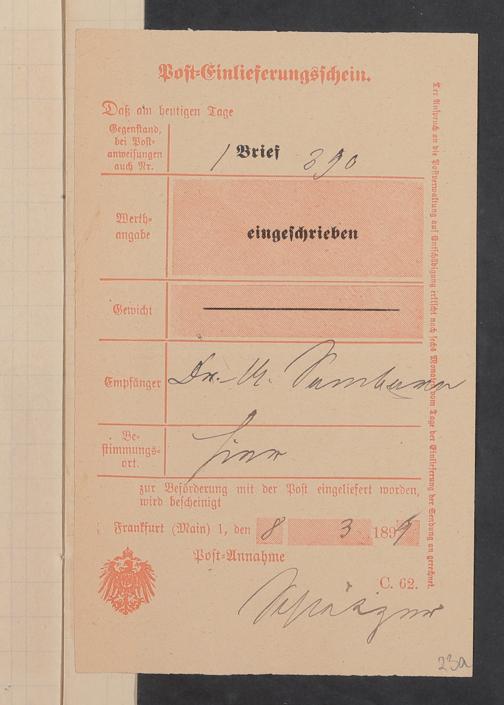 Post-Einlieferungsschein.
Daß am heutigen Tage
Gegenstand,
bei Post-
anweisungen
auch Nr.
1 Brief 390
Werth-
angabe
eingeschrieben
Gewicht
Empfänger
Dr. M.
Be-
stimmungs-
ort.
hier
zur Beförderung mit der Post eingeliefert worden,
wird bescheinigt
Frankfurt (Main) 1, den 8 3 1899
Post-Annahme
C. 62.
Der Anspruch an die Postverwaltung auf Entschädigung erlischt nach sechs Monaten vom Tage der Einlieferung der Sendung an gerechnet.
23a